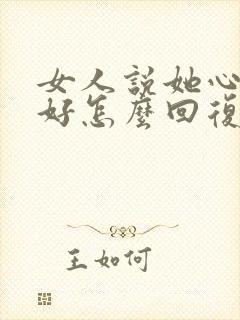 女人説她心
好怎麼回復
王如何